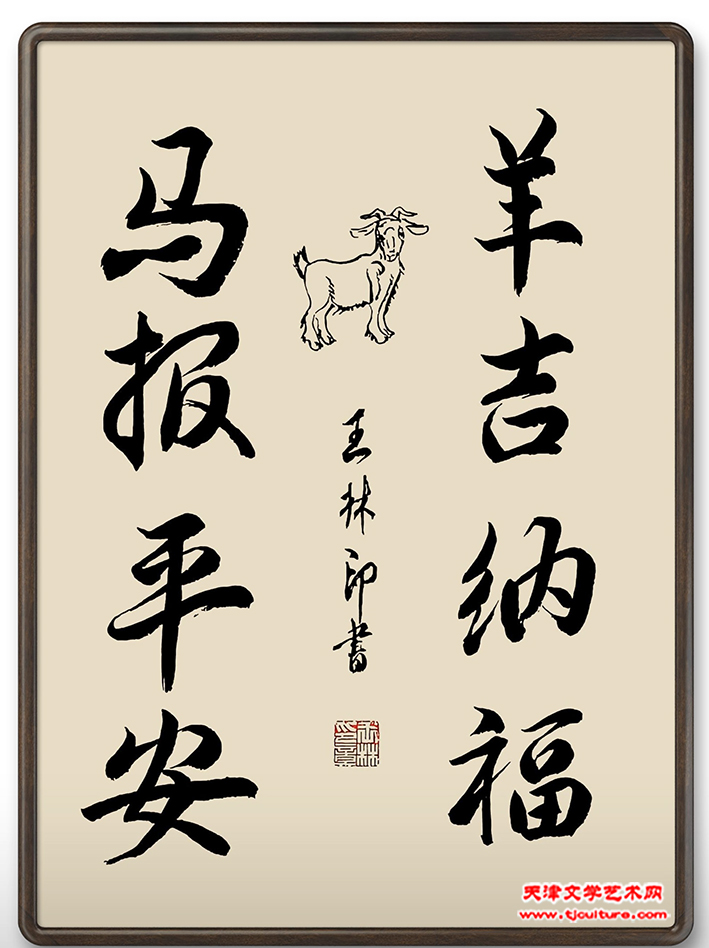 羊吉纳福
马报平安
王林印书
天津文学艺术网
www.tjculture.com